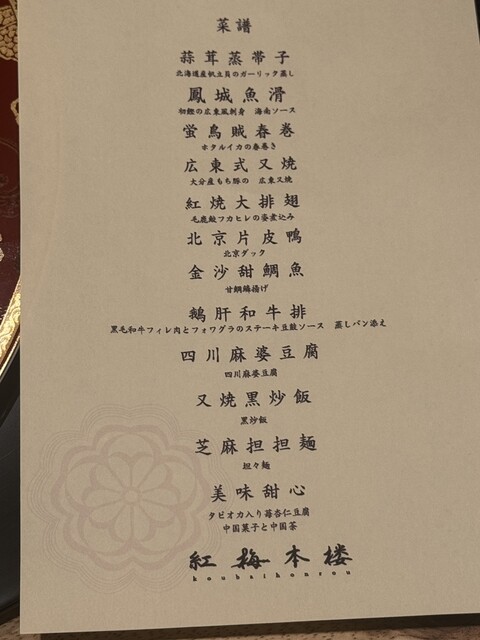 菜譜
蒜茸蒸帯子
北海道産帆立貝のガーリック蒸し
鳳城魚滑
初鰹の広東風刺身 海南ソース
蛍烏賊春巻
ホタルイカの春巻き
広東式叉焼
大分産もち豚の 広東叉焼
紅焼大排翅
毛鹿鮫フカヒレの姿煮込み
北京片皮鴨
北京ダック
金沙甜鯛魚
甘鯛鱗揚げ
鵝肝和牛排
黒毛和牛フィレ肉とフォワグラのステーキ豆鼓ソース 蒸しパン添え
四川麻婆豆腐
四川麻婆豆腐
叉焼黒炒飯
黒炒飯
芝麻担担麺
坦々麺
美味甜心
タピオカ入り苺杏仁豆腐
中国菓子と中国茶
紅梅本楼
koubaihonrou